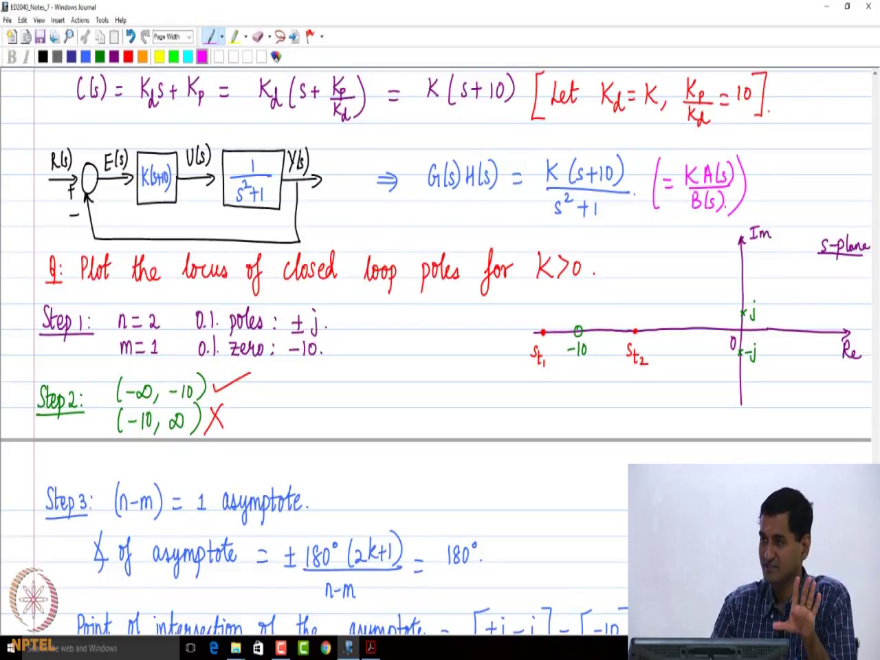 ED2040_Notes_7 - Windows Journal
File Edit View Insert Actions Tools Help
Page Width
C(s) = K_d s + K_p = K_d (s + K_p/K_d) = K (s+10) [Let K_d = K, K_p/K_d = 10].
R(s) E(s) U(s) Y(s)
+ K(s+10) 1/(s²+1)
−
⇒ G(s)H(s) = K(s+10)/(s²+1). (= KA(s)/B(s).)
Im s-plane
Q: Plot the locus of closed loop poles for K>0.
Step 1: n=2 o.l. poles: ± j.
m=1 o.l. zero: -10.
j
St₁ -10 St₂ 0 -j Re
Step 2: (-∞, -10) ✓
(-10, ∞) X
Step 3: (n-m) = 1 asymptote.
∡ of asymptote = ± 180° (2k+1)/(n-m) = 180°.
Point of intersection of the asymptote = [+j -j] - [-10]
NPTEL
the web and Windows